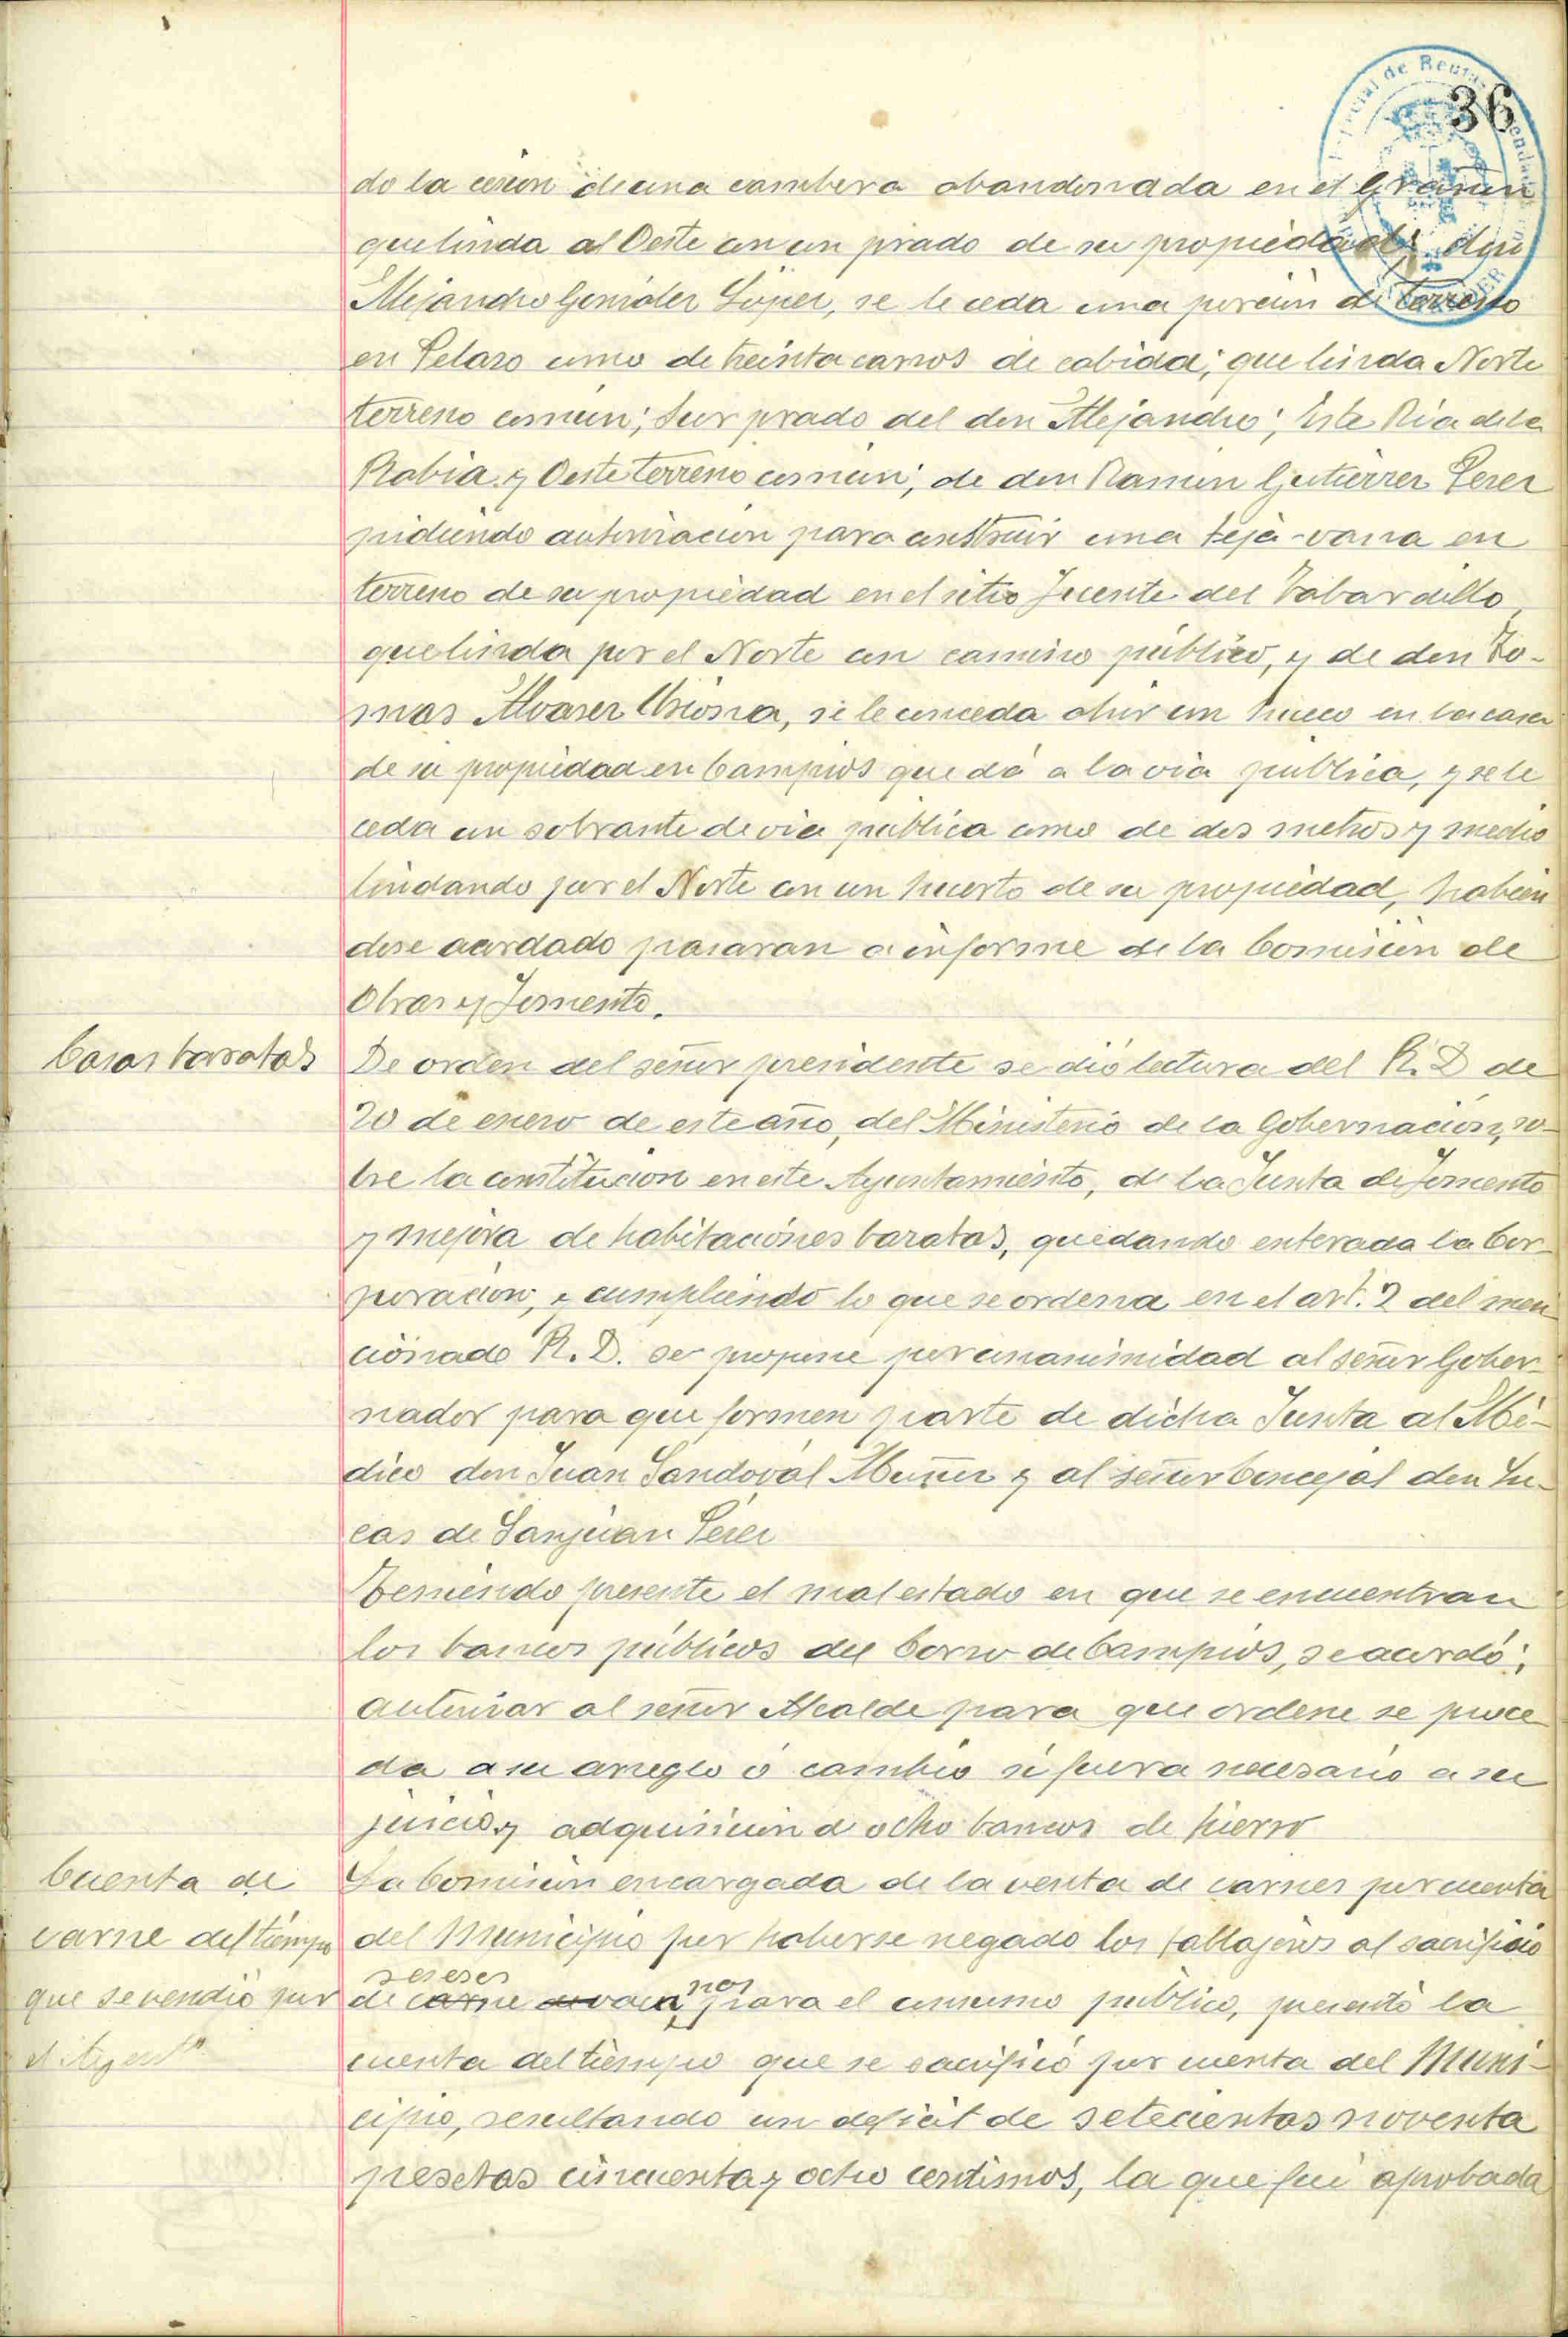 36
do la cesion de una cambera abandonada en el
que linda al Oeste con un prado de su propiedad; don
Alejandro González López, se le ceda una porción de terreno
en Pelazo como de treinta carros de cabida; que linda Norte
terreno común; Sur prado del don Alejandro; Este Ria de la
Rabia y Oeste terreno común; de don Ramón Gutierrez Perez
pidiendo autorización para construir una teja-vana en
terreno de su propiedad en el sitio Fuente del Tabardillo,
que linda por el Norte con camino público, y de don To-
mas Alvarez, se le conceda abrir un hueco en la casa
de su propiedad en Campios que dá a la via pública, y se le
ceda un sobrante de via pública como de dos metros y medio
lindando por el Norte con un huerto de su propiedad, habien
dose acordado pasaran a informe de la Comisión de
Obras y Fomento.
Casas baratas
De orden del señor presidente se dió lectura del R. D de
20 de enero de este año, del Ministerio de la Gobernación, so-
bre la constitucion en este Ayuntamiento, de la Junta de Fomento
y mejora de habitaciónes baratas, quedando enterada la Cor-
poración, y cumpliendo lo que se ordena en el art. 2 del men
cionado R. D. se propone por unanimidad al señor Gober-
nador para que formen parte de dicha Junta al Mé-
dico don Juan Sandoval Muñoz y al señor Concejal don Lu-
cas de Sanjuan Pérez
Teniendo presente el mal estado en que se encuentran
los bancos públicos del Corro de Campios, se acordó;
autorizar al señor Alcalde para que ordene se proce
da a su arreglo ó cambio si fuera necesario a su
juicio y adquisición de ocho bancos de hierro
Cuenta de
carne del tiempo
que se vendió por
el Ayunto
La Comisión encargada de la venta de carnes por cuenta
del Municipio por haberse negado los tablajeros al sacrificio
de reses para el consumo público, presentó la
cuenta del tiempo que se sacrificó por cuenta del Muni-
cipio, resultando un deficit de setecientas noventa
pesetas cincuenta y ocho centimos, la que fué aprobada